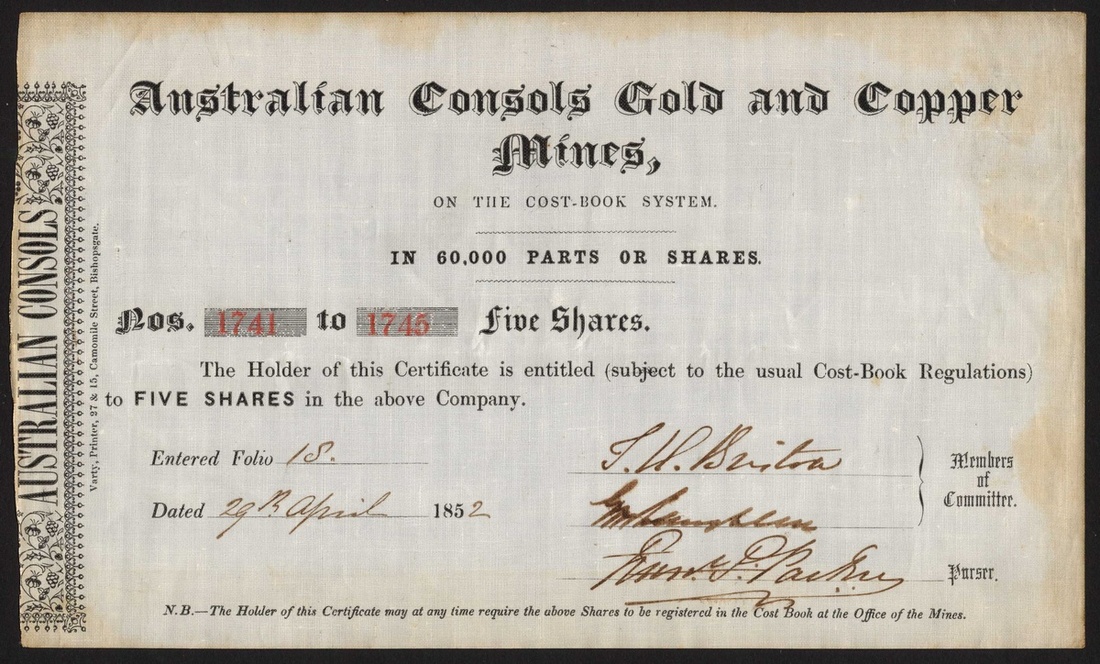 Australian Consols Gold and Copper
Mines,
ON THE COST-BOOK SYSTEM.
IN 60,000 PARTS OR SHARES.
Nos. 1741 to 1745 Five Shares.
The Holder of this Certificate is entitled (subject to the usual Cost-Book Regulations)
to FIVE SHARES in the above Company.
Entered Folio 18.
Dated 29th April 1852
Members
of
Committee.
Purser.
N.B.—The Holder of this Certificate may at any time require the above Shares to be registered in the Cost Book at the Office of the Mines.
AUSTRALIAN CONSOLS
Varty, Printer, 27 & 15, Camomile Street, Bishopsgate.